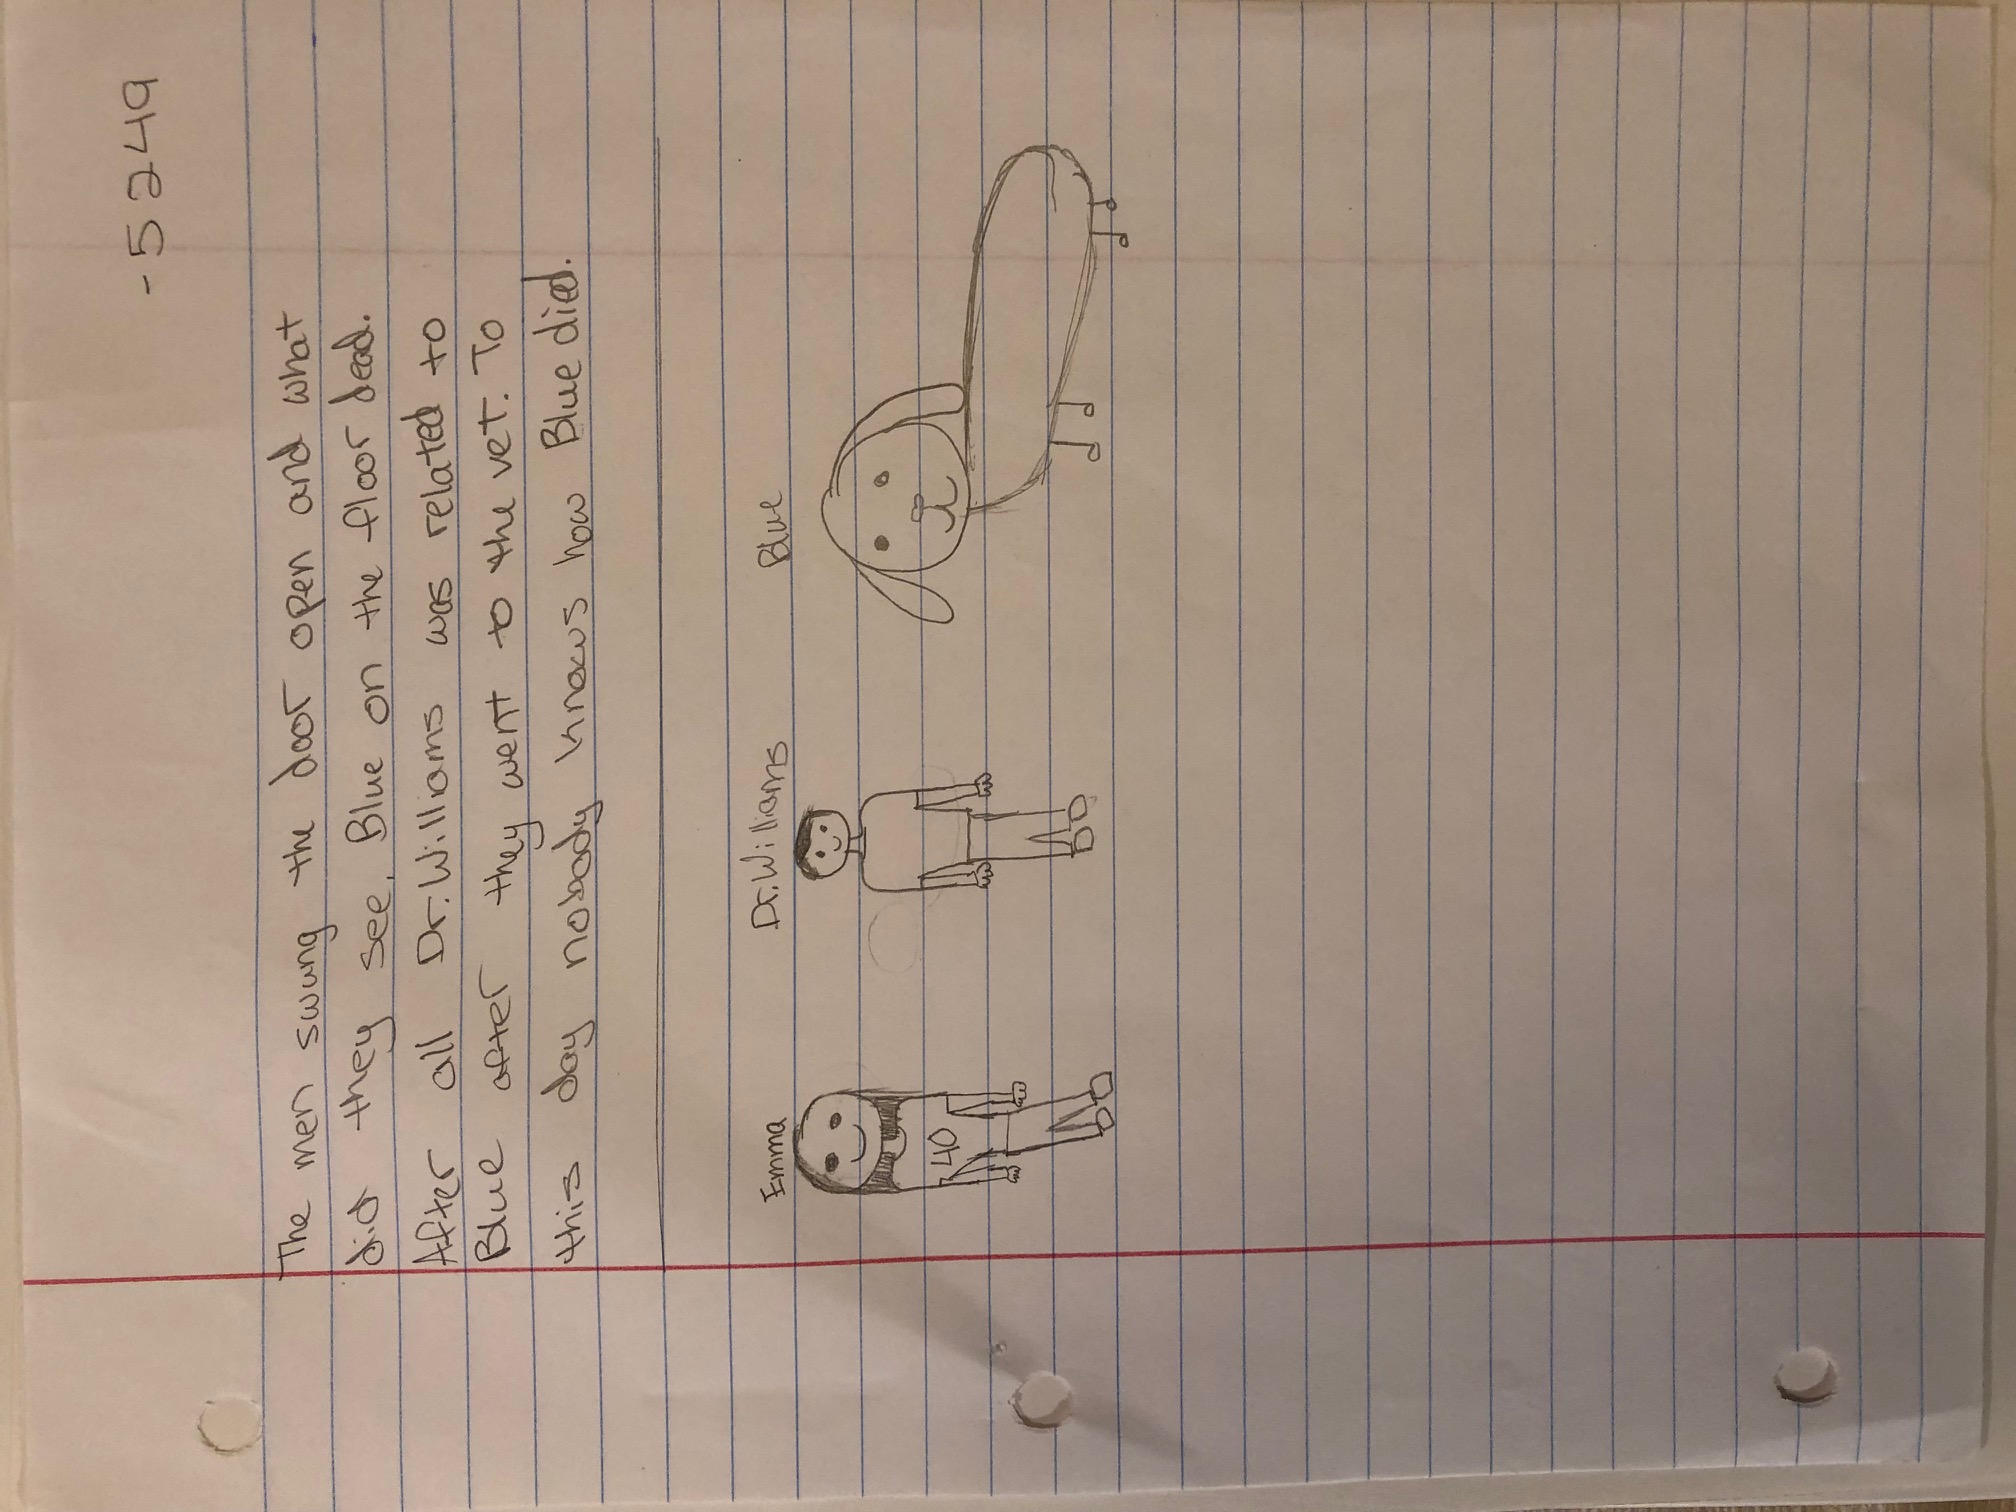 -5249
The men swung the door open and what
did they see, Blue on the floor dead.
After all Dr. Williams was related to
Blue after they went to the vet. To
this day nobody knows how Blue died.
Emma Dr. Williams Blue
40